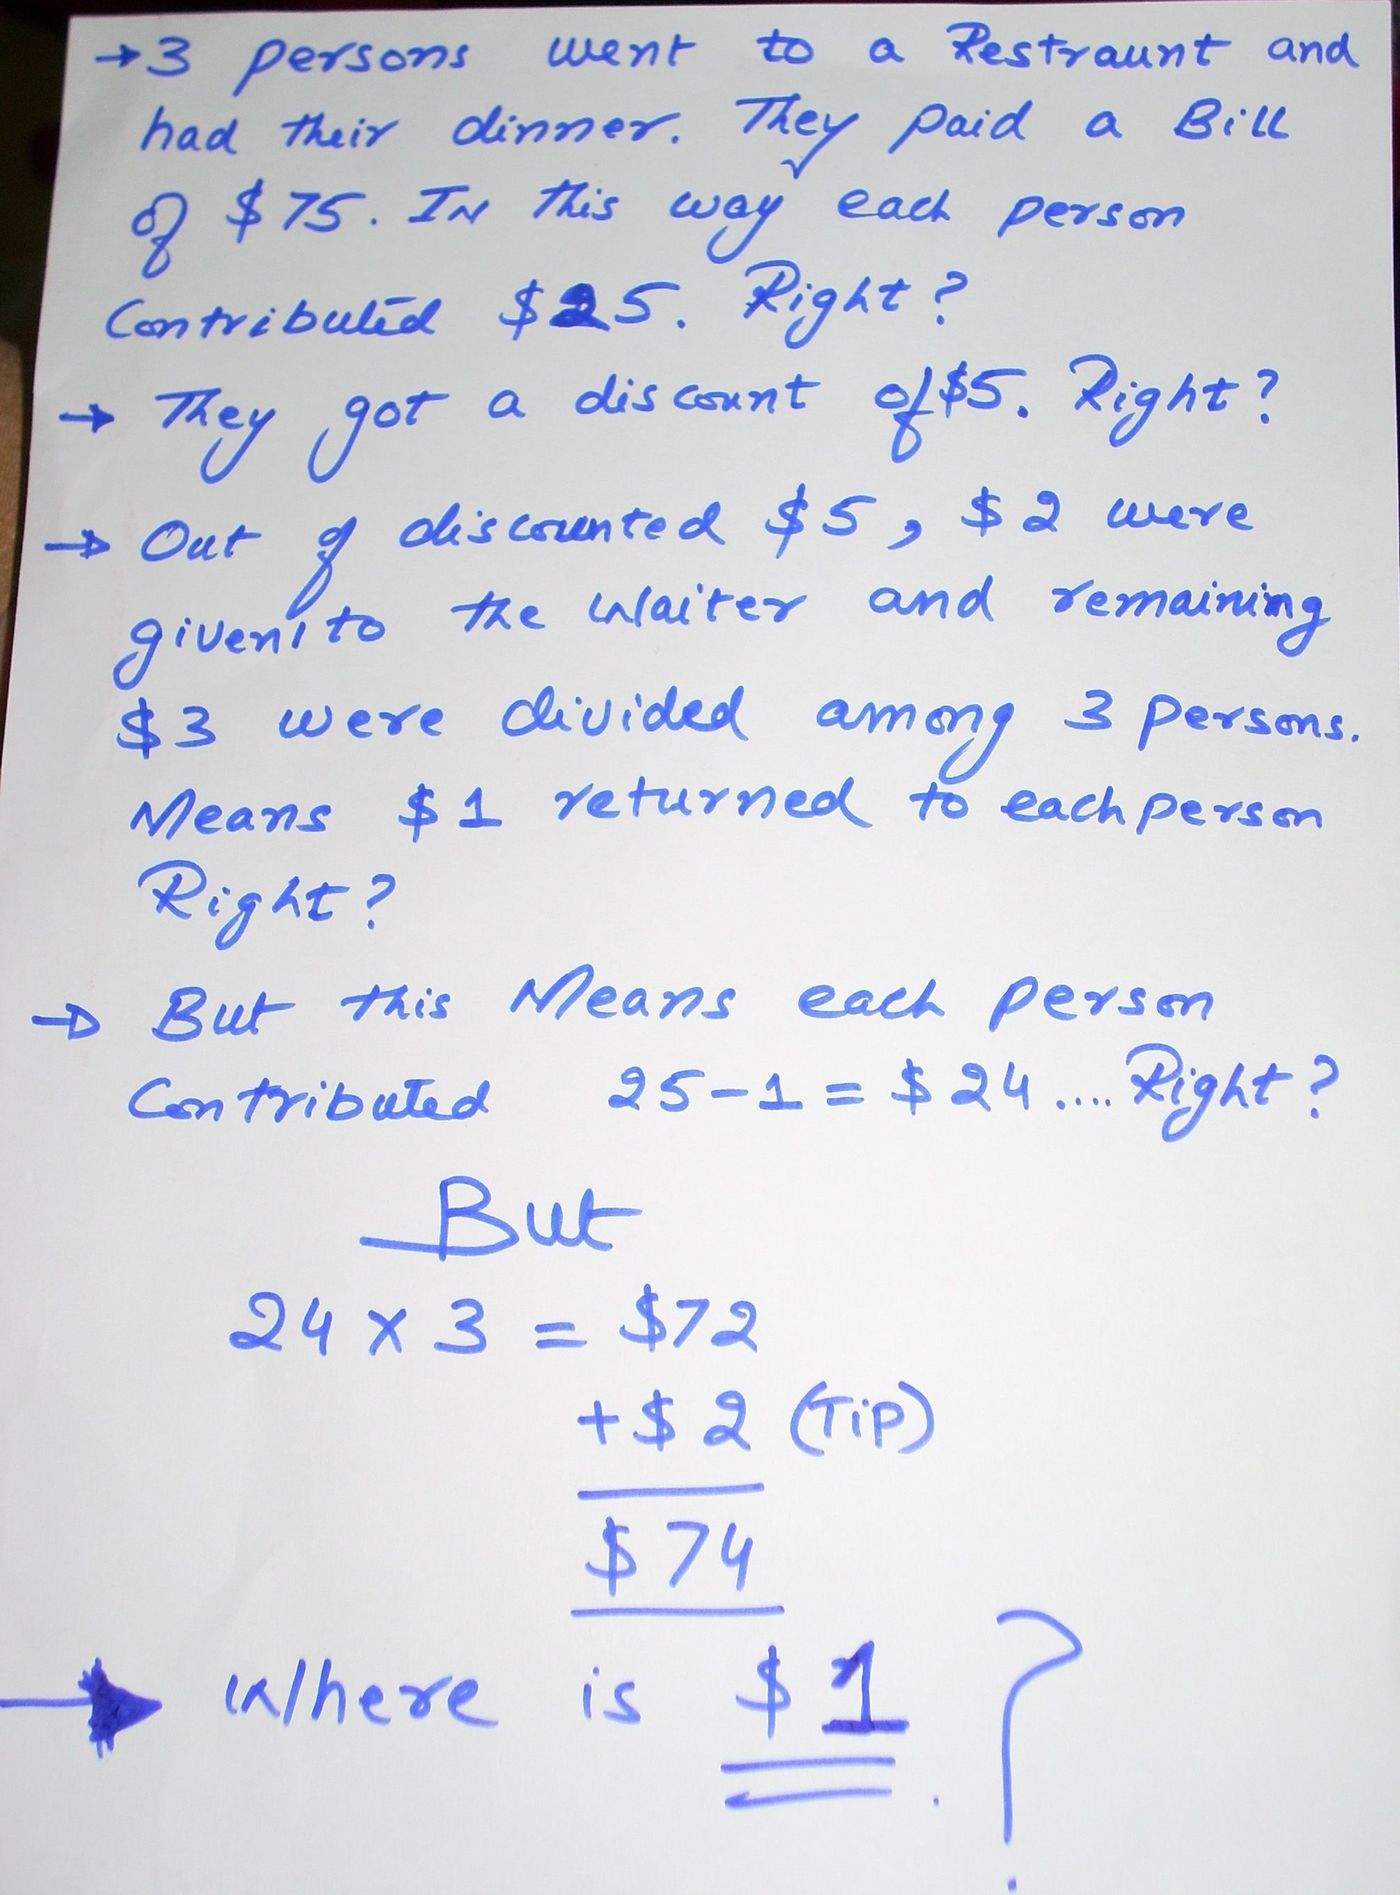 → 3 persons went to a Restraunt and
had their dinner. They paid a Bill
of $75. In this way each person
Contributed $25. Right?
→ They got a discount of $5. Right?
→ Out of discounted $5, $2 were
given to the Waiter and remaining
$3 were divided among 3 persons.
Means $1 returned to each person
Right?
→ But this Means each person
Contributed 25-1 = $24 .... Right?
But
24 x 3 = $72
+$2 (Tip)
$74
→ Where is $1 ?